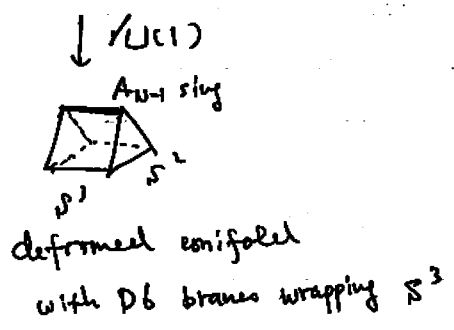 ↓ /U(1)
A_{N-1} sing
S^3
S^2
deformed conifold
with D6 branes wrapping S^3